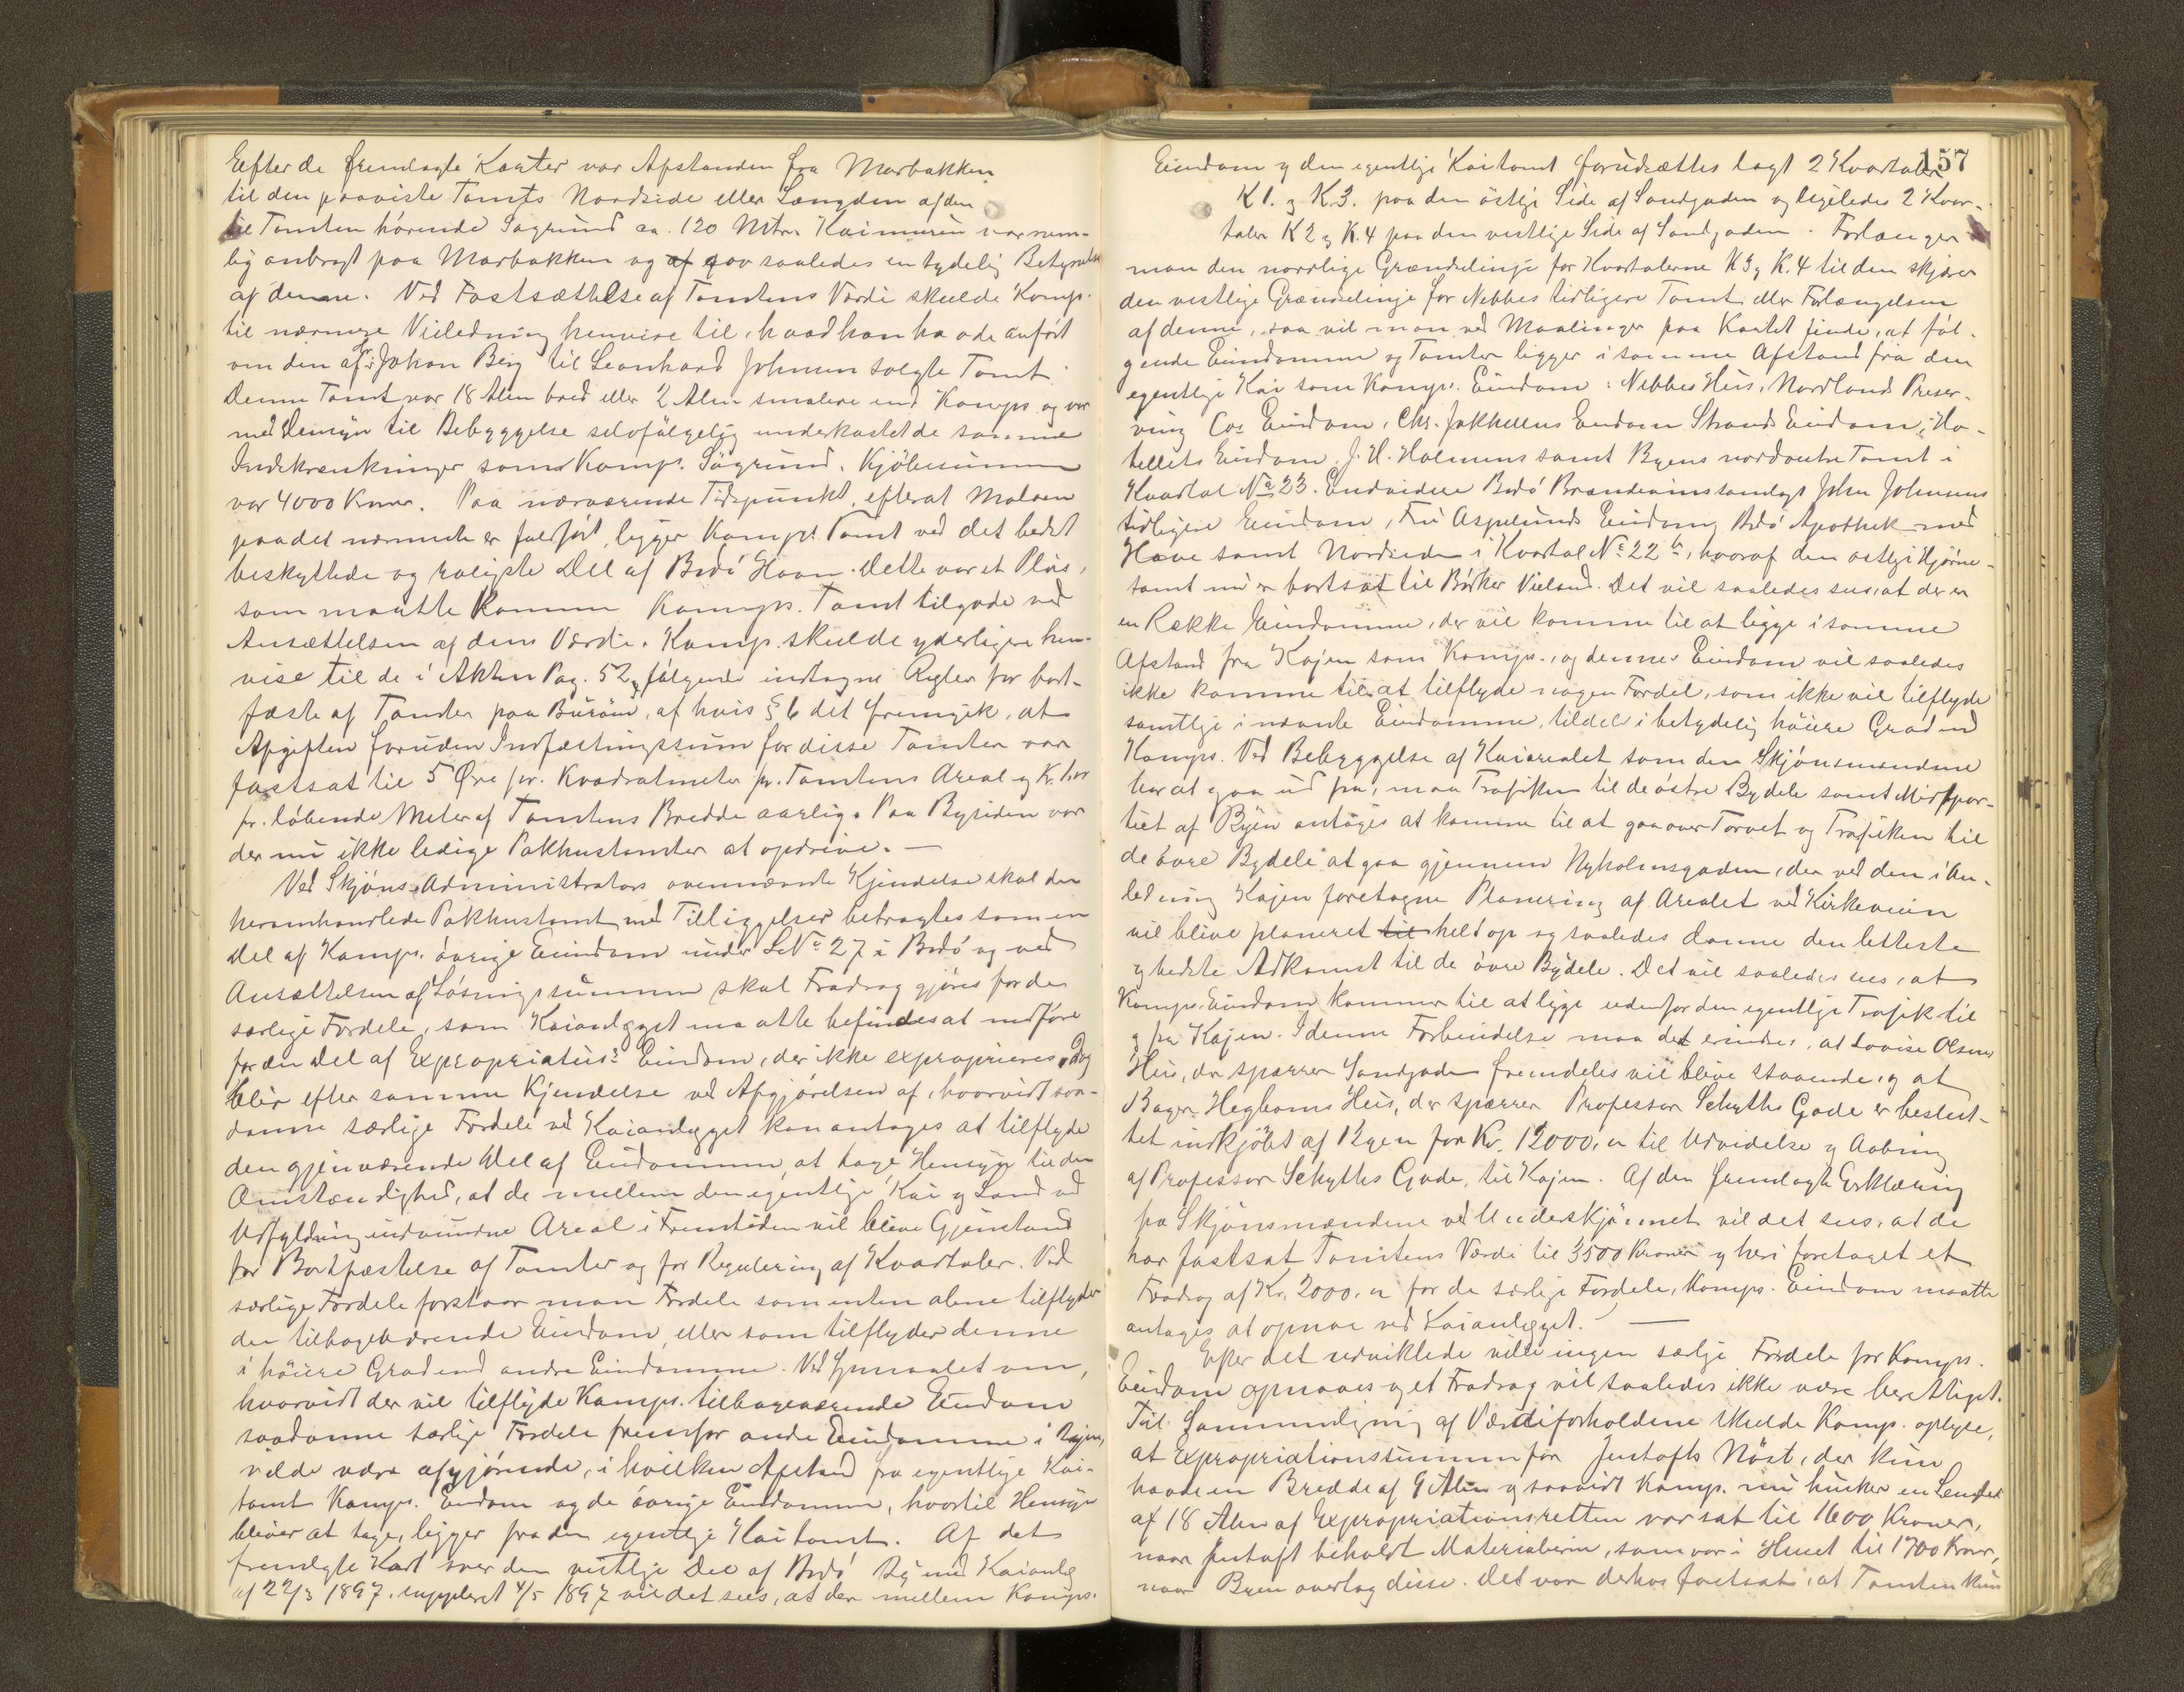 Efter de fremlagte Karter var Afstanden fra Marbakken
til den paaviste Tomts Nordside eller Længden af den
til Tomten hørende Søgrund ca. 120 Mtr. Kaimuren var nem-
lig anbragt paa Marbakken og gav saaledes en tydelig
af denne. Ved Fastsættelse af Tomtens Værdi skulde Komp.
til nærmere Veiledning henvise til, hvad han havde anført
om den af Jakon Berg til Leonhard Johnsen solgte Tomt.
Denne Tomt var 18 Alen bred eller 2 Alen smalere end Komps. og var
med Hensyn til Bebyggelse selvfølgelig underkastet de samme
Indskrænkninger som Komps. Søgrund. Kjøbesummen
var 4000 Kroner. Paa nærværende Tidspunkt, efterat Moloen
paa det nærmeste er fuldført, ligger Komps. Tomt ved det bedst
beskyttede og roligste Del af Bodø Havn. Dette var et Plus,
som maatte komme Komps. Tomt tilgode ved
Ansættelsen af dens Værdi. Komp. skulde yderligere hen-
vise til de i Akten Pag. 52 følgende indtagne Regler for bort-
fæste af Tomter paa Burøen, af hvis § 6 det fremgik, at
Afgiften foruden Indfæstningssum for disse Tomter var
fastsat til 5 Øre pr. Kvadratmeter pr. Tomtens Areal og Kr.
pr. løbende Meter af Tomtens Bredde aarlig. Paa Bysiden var
der nu ikke ledige Pakhustomter at opdrive. —
Ved Skjøns-Administrators ovennævnte Kjendelse skal den
heromhandlede Pakhustomt med Tilliggelser betragtes som en
Del af Komps. øvrige Eiendom under L.Nr. 27 i Bodø og ved
Ansættelsen af Løsningssummen skal Fradrag gjøres for de
særlige Fordele, som Kaianlægget maatte befindes at medføre
for den Del af Expropriatus's Eiendom, der ikke exproprieres. Dog
bliv efter samme Kjendelse ved Afgjørelsen af, hvorvidt saa-
danne særlige Fordele ved Kaianlægget kan antages at tilflyde
den gjenværende Del af Eiendommen, at tage Hensyn til den
Omstændighed, at de mellem den egentlige Kai og Land ved
Udfylding indvundne Areal i Fremtiden vil blive Gjenstand
for Bortfæstelse af Tomter og for Regulering af Kvartaler. Ved
særlige Fordele forstaar man Fordele som enten alene tilflyder
den tilbageværende Eiendom, eller som tilflyder denne
i høiere Grad end andre Eiendomme. Ved Spmaalet om,
hvorvidt der vil tilflyde Komps. tilbageværende Eiendom
saadanne særlige Fordele fremfor andre Eiendomme i Byen,
vilde være afgjørende, i hvilken Afstand fra egentlige Kai-
tomt Komps. Eiendom og de øvrige Eiendomme, hvortil Hensyn
bliver at tage, ligger fra den egentlige Kaitomt. Af det
fremlagte Kart over den vestlige Del af Bodø By med Kaianlæg
af 22/3 1897, suppleret 4/5 1897 vil det sees, at der mellem Komps.
157
Eiendom og den egentlige Kaitomt forudsættes lagt 2 Kvartaler
K 1. og K 3. paa den østlige Side af Sandgaden og ligeledes 2 Kvar-
taler K 2 og K. 4 paa den vestlige Side af Sandgaden. Forlænger
man den nordlige Grændselinje for Kvartalerne K 3 og K. 4 til den skjærer
den vestlige Grændselinje for Nebbes tidligere Tomt eller Forlængelsen
af denne, saa vil man ved Maalinger paa Kartet finde, at føl-
gende Eiendomme og Tomter ligger i samme Afstand fra den
egentlige Kai som Komps. Eiendom: Nebbes Hus, Nordlands Preser-
ving Co's Eiendom, Chr. Jakhellns Eiendom Strands Eiendom, Ho-
tellets Eiendom, J. H. Holmens samt Byens nordøstre Tomt i
Kvartal No 23. Endvidere Bodø Brændevinssamlags John Johnsens
tidligere Eiendom, Fru Aspelunds Eiendom, Bodø Apothek med
Have samt Nordsiden i Kvartal No 22 b, hvoraf den østlige Hjørne-
tomt nu er bortsat til Birker Vieland. Det vil saaledes sees, at der er
en Række Eiendomme, der vil komme til at ligge i samme
Afstand fra Kajen som Komps., og dennes Eiendom vil saaledes
ikke komme til at tilflyde nogen Fordel, som ikke vil tilflyde
samtlige i nævnte Eiendomme, tildels i betydelig høiere Grad end
Komps. Ved Bebyggelse af Kaiarealet som den Skjønsmændene
har at gaa ud fra, maa Trafiken til de østre Bydele samt Midtpar-
tiet af Byen antages at komme til at gaa over Torvet og Trafiken til
de øvre Bydele at gaa gjennem Nyholmsgaden, der ved den i An-
ledning Kajen foretagne Planering af Arealet ved Kirkeveien
vil blive planeret helt op og saaledes danne den letteste
og bedste Adkomst til de øvre Bydele. Det vil saaledes sees, at
Komps. Eiendom kommer til at ligge udenfor den egentlige Trafik til
og fra Kajen. I denne Forbindelse maa det erindres, at Lovise Olsens
Hus, der spærrer Sandgaden fremdeles vil blive staaende, og at
Bager Hegboms Hus, der spærrer Professor Schyths Gade er beslut-
tet indkjøbt af Byen for Kr. 12000,00 til Udvidelse og Aabning
af Professor Schyths Gade, til Kajen. Af den fremlagte Erklæring
fra Skjønsmændene ved Underskjønnet vil det sees, at de
har fastsat Tomtens Værdi til 3500 Kroner og heri foretaget et
Fradrag af Kr. 2000,00 for de særlige Fordele, Komps. Eiendom maatte
antages at opnaa ved Kaianlægget. —
Efter det udviklede vilde ingen særlige Fordele for Komps.
Eiendom opnaaes og et Fradrag vil saaledes ikke være berettiget.
Til Sammenligning af Værdiforholdene skulde Komp. oplyse,
at Expropriationssummen for Jentofts Nøst, der kun
havde en Bredde af 9 Alen og saavidt Komp. nu husker en Længde
af 18 Alen af Expropriationsretten var sat til 1600 Kroner,
naar Jentoft beholdt Materialierne, som var i Huset til 1700 Kroner,
naar Byen overtog disse. Det var derhos fastsat, at Tomten kun